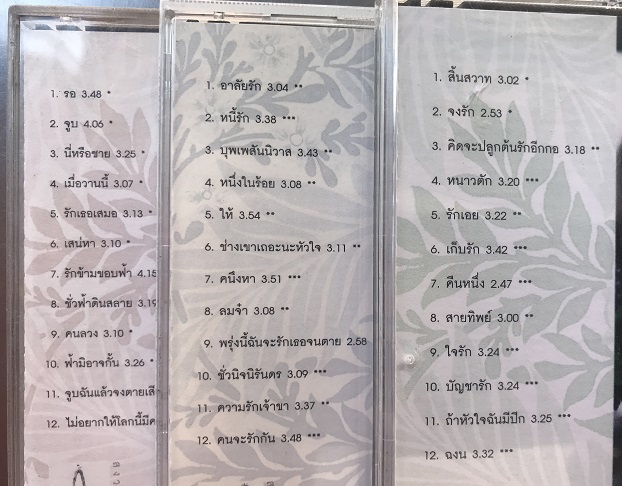 1. รอ 3.48 *
2. จูบ 4.06 *
3. นี่หรือชาย 3.25 *
4. เมื่อวานนี้ 3.07 *
5. รักเธอเสมอ 3.13 *
6. เสน่หา 3.10 *
7. รักข้ามขอบฟ้า 4.15
8. ชั่วฟ้าดินสลาย 3.19
9. คนลวง 3.10 *
10. ฟ้ามิอาจกั้น 3.26 *
11. จูบฉันแล้วจงตายเสี
12. ไม่อยากให้โลกนี้มีค
1. อาลัยรัก 3.04 **
2. หนี้รัก 3.38 ***
3. บุพเพสันนิวาส 3.43 **
4. หนึ่งในร้อย 3.08 **
5. ให้ 3.54 **
6. ช่างเขาเถอะนะหัวใจ 3.11 **
7. คนึงหา 3.51 ***
8. ลมจ๋า 3.08 **
9. พรุ่งนี้ฉันจะรักเธอจนตาย 2.58
10. ชั่วนิจนิรันดร 3.09 ***
11. ความรักเจ้าขา 3.37 **
12. คนจะรักกัน 3.48 ***
1. สิ้นสวาท 3.02 *
2. จงรัก 2.53 *
3. คิดจะปลูกต้นรักอีกกอ 3.18 **
4. หนาวตัก 3.20 ***
5. รักเอย 3.22 **
6. เก็บรัก 3.42 ***
7. คืนหนึ่ง 2.47 ***
8. สายทิพย์ 3.00 **
9. ใจรัก 3.24 ***
10. บัญชารัก 3.24 ***
11. ถ้าหัวใจฉันมีปีก 3.25 ***
12. ฉงน 3.32 ***